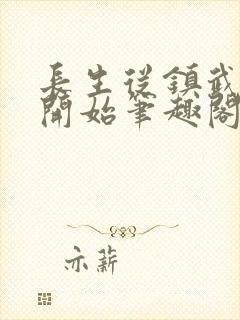 長生從鎮武
開始筆趣閣
亦薪